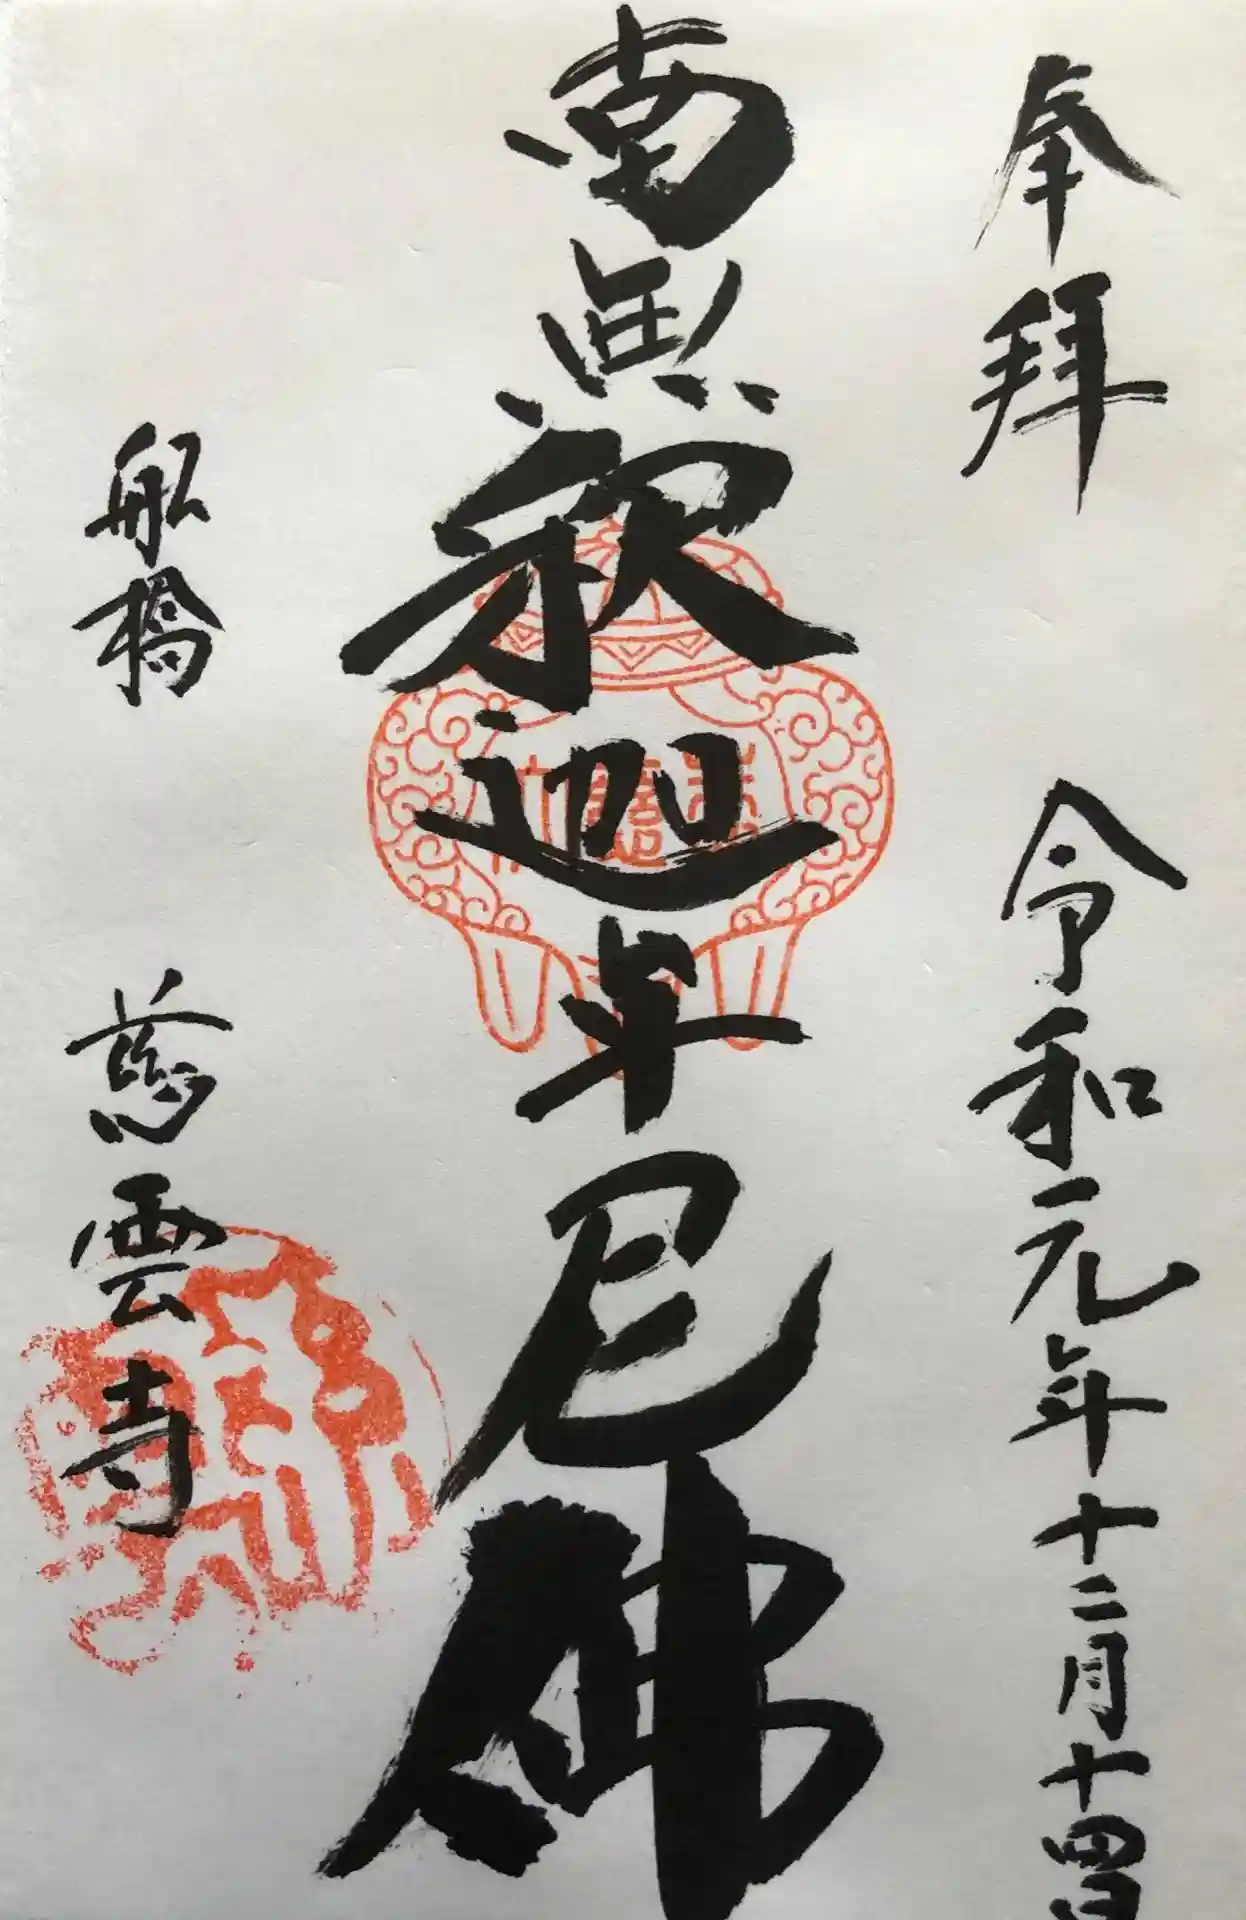 奉拝 令和元年十二月十四日
南無釈迦牟尼佛
船橋 慈雲寺